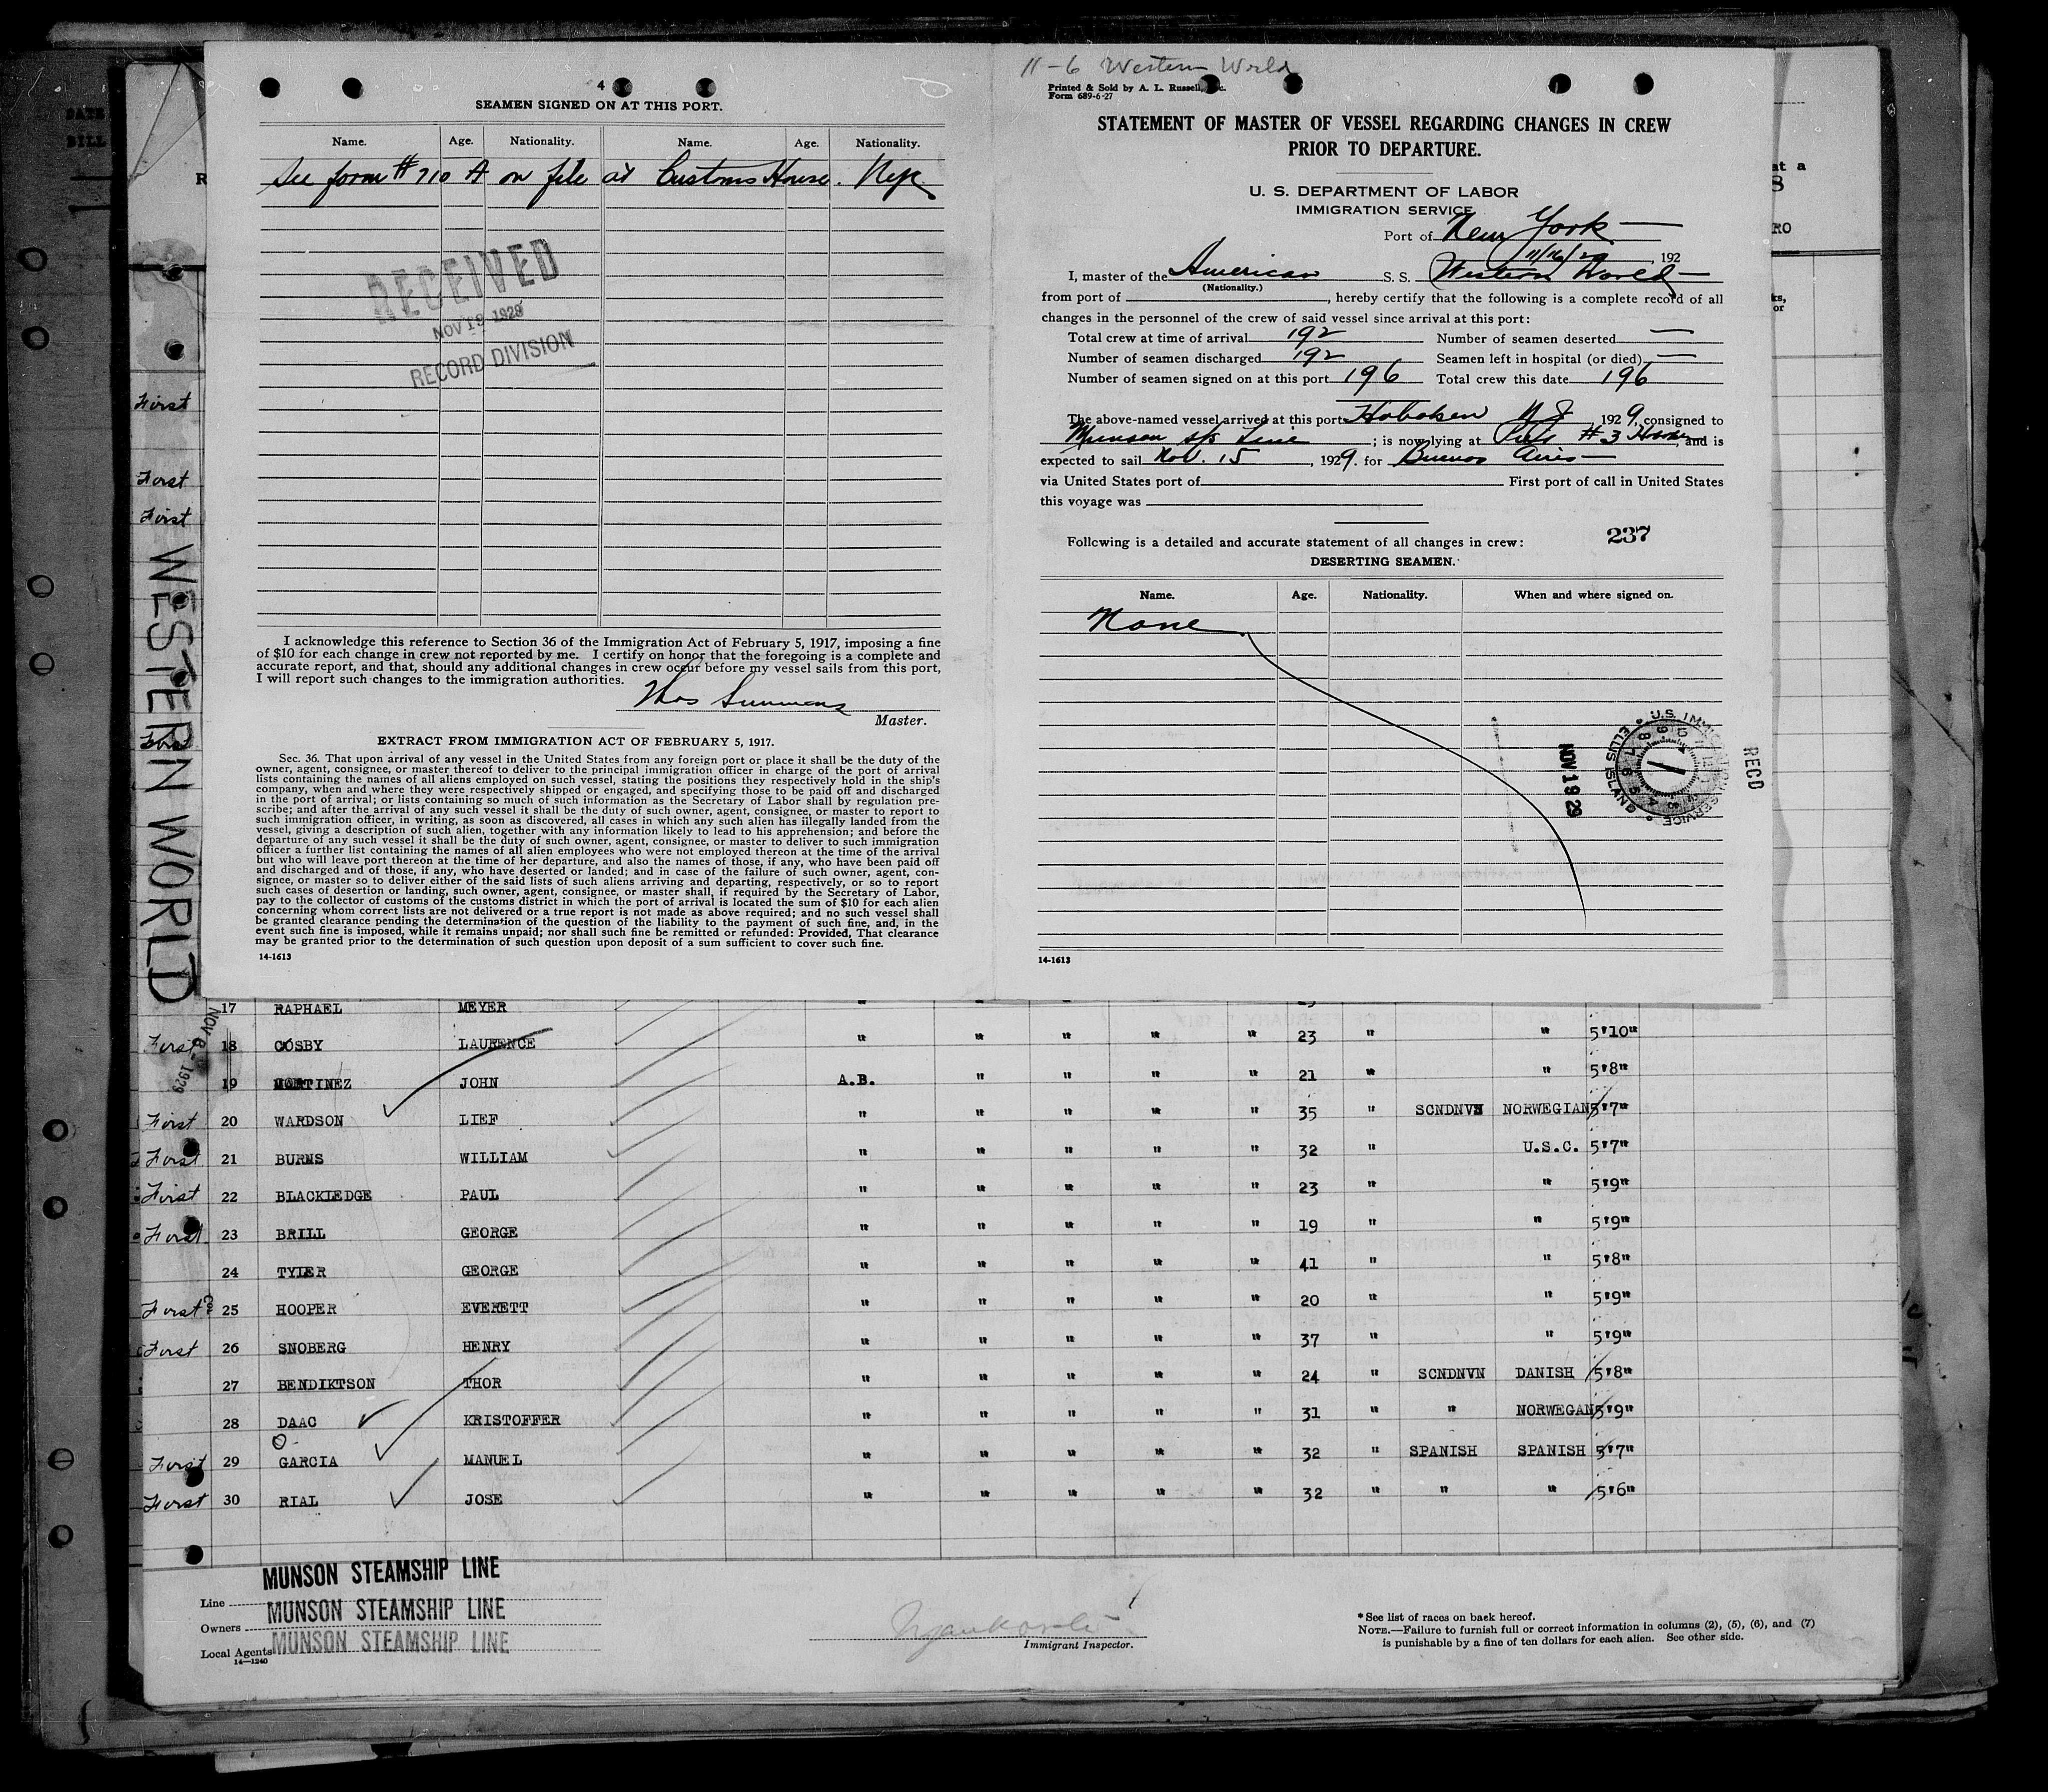 4
SEAMEN SIGNED ON AT THIS PORT.
Name. Age. Nationality. Name. Age. Nationality.
See form # 710 A on file at Customs House. Nyc
RECEIVED
NOV 19 1929
RECORD DIVISION
I acknowledge this reference to Section 36 of the Immigration Act of February 5, 1917, imposing a fine
of $10 for each change in crew not reported by me. I certify on honor that the foregoing is a complete and
accurate report, and that, should any additional changes in crew occur before my vessel sails from this port,
I will report such changes to the immigration authorities.
Thos Simmons
Master.
EXTRACT FROM IMMIGRATION ACT OF FEBRUARY 5, 1917.
Sec. 36. That upon arrival of any vessel in the United States from any foreign port or place it shall be the duty of the
owner, agent, consignee, or master thereof to deliver to the principal immigration officer in charge of the port of arrival
lists containing the names of all aliens employed on such vessel, stating the positions they respectively hold in the ship's
company, when and where they were respectively shipped or engaged, and specifying those to be paid off and discharged
in the port of arrival; or lists containing so much of such information as the Secretary of Labor shall by regulation pre-
scribe; and after the arrival of any such vessel it shall be the duty of such owner, agent, consignee, or master to report to
such immigration officer, in writing, as soon as discovered, all cases in which any such alien has illegally landed from the
vessel, giving a description of such alien, together with any information likely to lead to his apprehension; and before the
departure of any such vessel it shall be the duty of such owner, agent, consignee, or master to deliver to such immigration
officer a further list containing the names of all alien employees who were not employed thereon at the time of the arrival
but who will leave port thereon at the time of her departure, and also the names of those, if any, who have been paid off
and discharged and of those, if any, who have deserted or landed; and in case of the failure of such owner, agent, con-
signee, or master so to deliver either of the said lists of such aliens arriving and departing, respectively, or so to report
such cases of desertion or landing, such owner, agent, consignee, or master shall, if required by the Secretary of Labor,
pay to the collector of customs of the customs district in which the port of arrival is located the sum of $10 for each alien
concerning whom correct lists are not delivered or a true report is not made as above required; and no such vessel shall
be granted clearance pending the determination of the question of the liability to the payment of such fine, and, in the
event such fine is imposed, while it remains unpaid; nor shall such fine be remitted or refunded: Provided, That clearance
may be granted prior to the determination of such question upon deposit of a sum sufficient to cover such fine.
14-1613
11-6 Western World
Printed & Sold by A. L. Russell, Inc.
Form 689-6-27
STATEMENT OF MASTER OF VESSEL REGARDING CHANGES IN CREW
PRIOR TO DEPARTURE.
U. S. DEPARTMENT OF LABOR
IMMIGRATION SERVICE
Port of New York
11/16/29, 192
I, master of the American S. S. Western World
(Nationality.)
from port of , hereby certify that the following is a complete record of all
changes in the personnel of the crew of said vessel since arrival at this port:
Total crew at time of arrival 192 Number of seamen deserted —
Number of seamen discharged 192 Seamen left in hospital (or died) —
Number of seamen signed on at this port 196 Total crew this date 196
The above-named vessel arrived at this port Hoboken NJ, 1929, consigned to
Munson S/S Line ; is now lying at Pier #3 Hoboken, and is
expected to sail Nov. 15, 1929. for Buenos Aires
via United States port of First port of call in United States
this voyage was
Following is a detailed and accurate statement of all changes in crew: 237
DESERTING SEAMEN.
Name. Age. Nationality. When and where signed on.
None
RECD
NOV 19 29
U.S. IMMIGRATION SERVICE
ELLIS ISLAND
14-1613
WESTERN WORLD
NOV 6 - 1929
First
First
First
First
17 RAPHAEL MEYER
First 18 COSBY LAURENCE " " " " " 23 " " 5'10"
19 MARTINEZ JOHN A.B. " " " " 21 " " 5'8"
First 20 WARDSON LIEF " " " " " 35 " SCNDNVN NORWEGIAN 5'7"
First 21 BURNS WILLIAM " " " " " 32 " U.S.C. 5'7"
First 22 BLACKLEDGE PAUL " " " " " 23 " " 5'9"
First 23 BRILL GEORGE " " " " " 19 " " 5'9"
24 TYLER GEORGE " " " " " 41 " " 5'8"
First 25 HOOPER EVERETT " " " " " 20 " " 5'9"
First 26 SNOBERG HENRY " " " " " 37 " " 5'9"
27 BENDIKTSON THOR " " " " " 24 " SCNDNVN DANISH 5'8"
28 DAAC KRISTOFFER " " " " " 31 " " NORWEGAN 5'9"
First 29 GARCIA MANUEL " " " " " 32 " SPANISH SPANISH 5'7"
First 30 RIAL JOSE " " " " " 32 " " " 5'6"
Line MUNSON STEAMSHIP LINE
Owners MUNSON STEAMSHIP LINE
Local Agents MUNSON STEAMSHIP LINE
14-1240
Immigrant Inspector.
* See list of races on back hereof.
NOTE.—Failure to furnish full or correct information in columns (2), (5), (6), and (7)
is punishable by a fine of ten dollars for each alien. See other side.